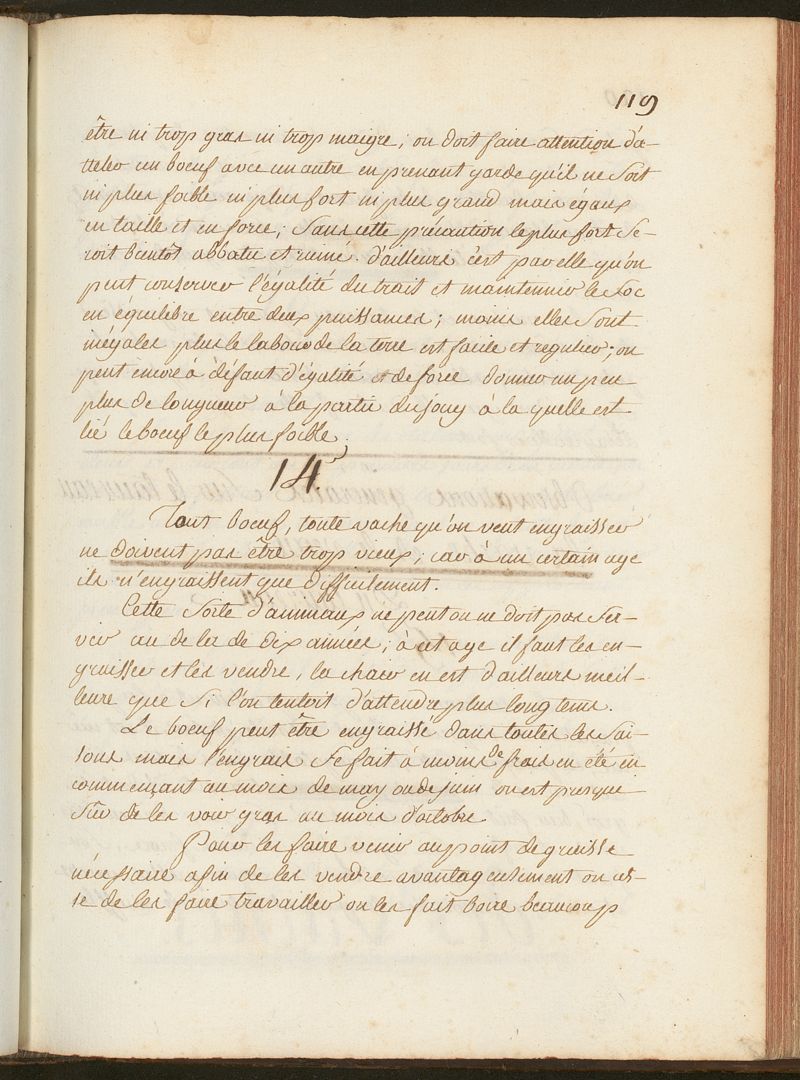 119
être ni trop gras ni trop maigre; on doit faire attention d'a-
tteler un boeuf avec un autre en prenant garde qu'il ne soit
ni plus foible ni plus fort ni plus grand mais égaux
en taille et en force; sans cette précaution le plus fort se-
roit bientôt abbatu et ruiné. d'ailleurs c'est par elle qu'on
peut conserver l'égalité du trait et maintennir le soc
en équilibre entre deux puissances; moins elles sont
inégales plus le labour de la terre est facile et regulier; on
peut encore à défaut d'égalité et de force donner un peu
plus de longueur à la partie du joug à la quelle est
lié le boeuf le plus foible.
14.
Tout boeuf, toute vache qu'on veut engraisser
ne doivent pas être trop vieux; car à un certain age
ils n'engraissent que difficilement.
Cette sorte d'animaux ne peut ou ne doit pas ser-
vir au de la de dix années; à cet age il faut les en-
graisser et les vendre, la chair en est d'ailleurs meil-
leure que si l'on tentoit d'attendre plus long tems.
Le boeuf peut être engraissé dans toutes les sai-
sons mais l'engrais se fait à moins de frais en été en
commençant au mois de may ou de juin on est presque
sûr de les voir gras au mois d'octobre.
Pour les faire venir au point de graisse
nécessaire afin de les vendre avantageusement on ces-
se de les faire travailler on les fait boire beaucoup